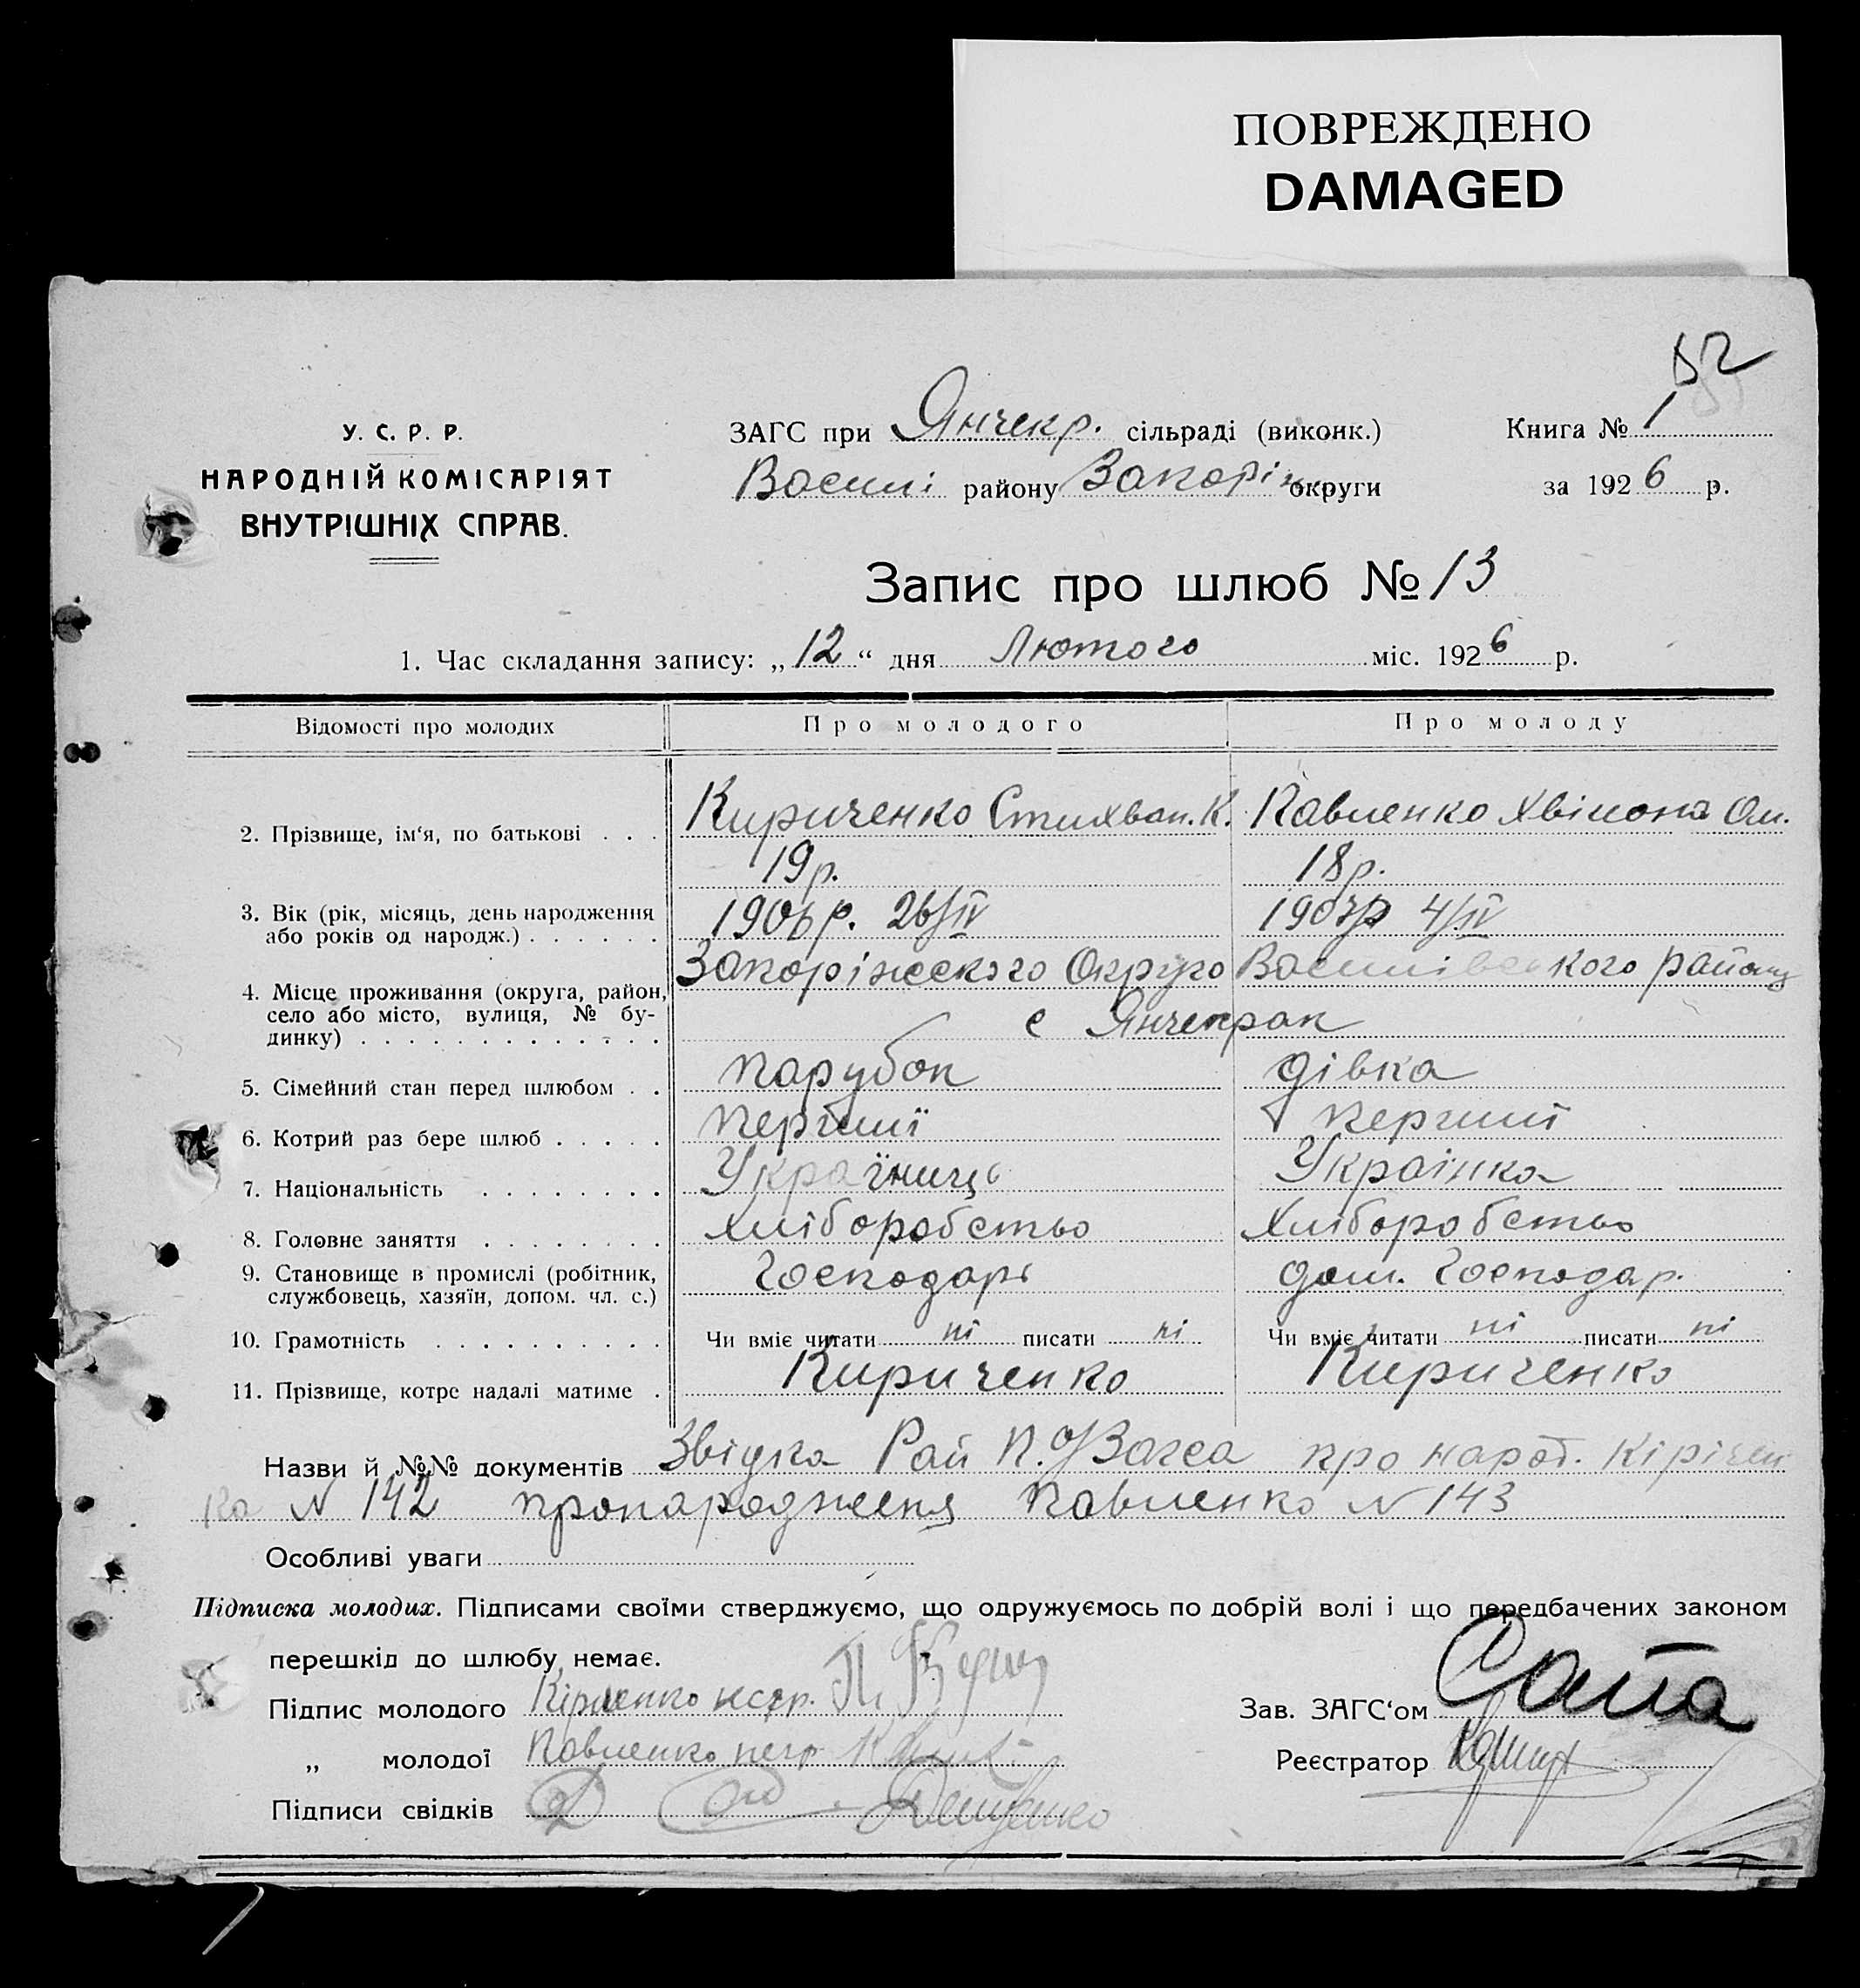 ПОВРЕЖДЕНО
DAMAGED
52
У. С. Р. Р.
НАРОДНІЙ КОМІСАРІЯТ
ВНУТРІШНІХ СПРАВ.
ЗАГС при Янчекр. сільраді (виконк.)
Василі району Запоріж округи
Книга № 1
за 1926 р.
Запис про шлюб № 13
1. Час складання запису: „12“ дня Лютого міс. 1926 р.
Відомості про молодих Про молодого Про молоду
2. Прізвище, ім‘я, по батькові . . . Кириченко Стихван. К. Павленко Хвімона Ом.
19р. 18р.
3. Вік (рік, місяць, день народження
або років од народж.) . . . . . . 1906р. 26/IV 1907р 4/IV
Запоріжского Округо Василівського району
4. Місце проживання (округа, район,
село або місто, вулиця, № бу-
динку) . . . . . . . . . . . . . с Янчекрак
5. Сімейний стан перед шлюбом . . парубок дівка
6. Котрий раз бере шлюб . . . . . перший перший
7. Національність . . . . . . . . Україниць Українка
8. Головне заняття . . . . . . . . Хліборобство Хліборобство
9. Становище в промислі (робітник,
службовець, хазяїн, допом. чл. с.) Господарь дом. Господар.
10. Грамотність . . . . . . . . . . Чи вміє читати ні писати ні Чи вміє читати ні писати ні
11. Прізвище, котре надалі матиме . Кириченко Кириченко
Назви й №№ документів Звідка Рай П. Загса про народ. Кірічен
ка N 142 пронародженя Павленко N 143
Особливі уваги
Підписка молодих. Підписами своїми стверджуємо, що одружуємось по добрій волі і що передбачених законом
перешкід до шлюбу немає.
Підпис молодого
„ молодої Павленко
Підписи свідків
Зав. ЗАГС‘ом
Реєстратор